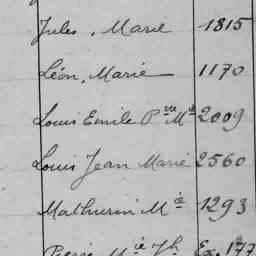 Jules, Marie 1815
Léon, Marie 1170
Louis Emile Pre Me 2009
Louis Jean Marie 2560
Mathurin Mie 1293
Pierre Mie Jh Ex. 177